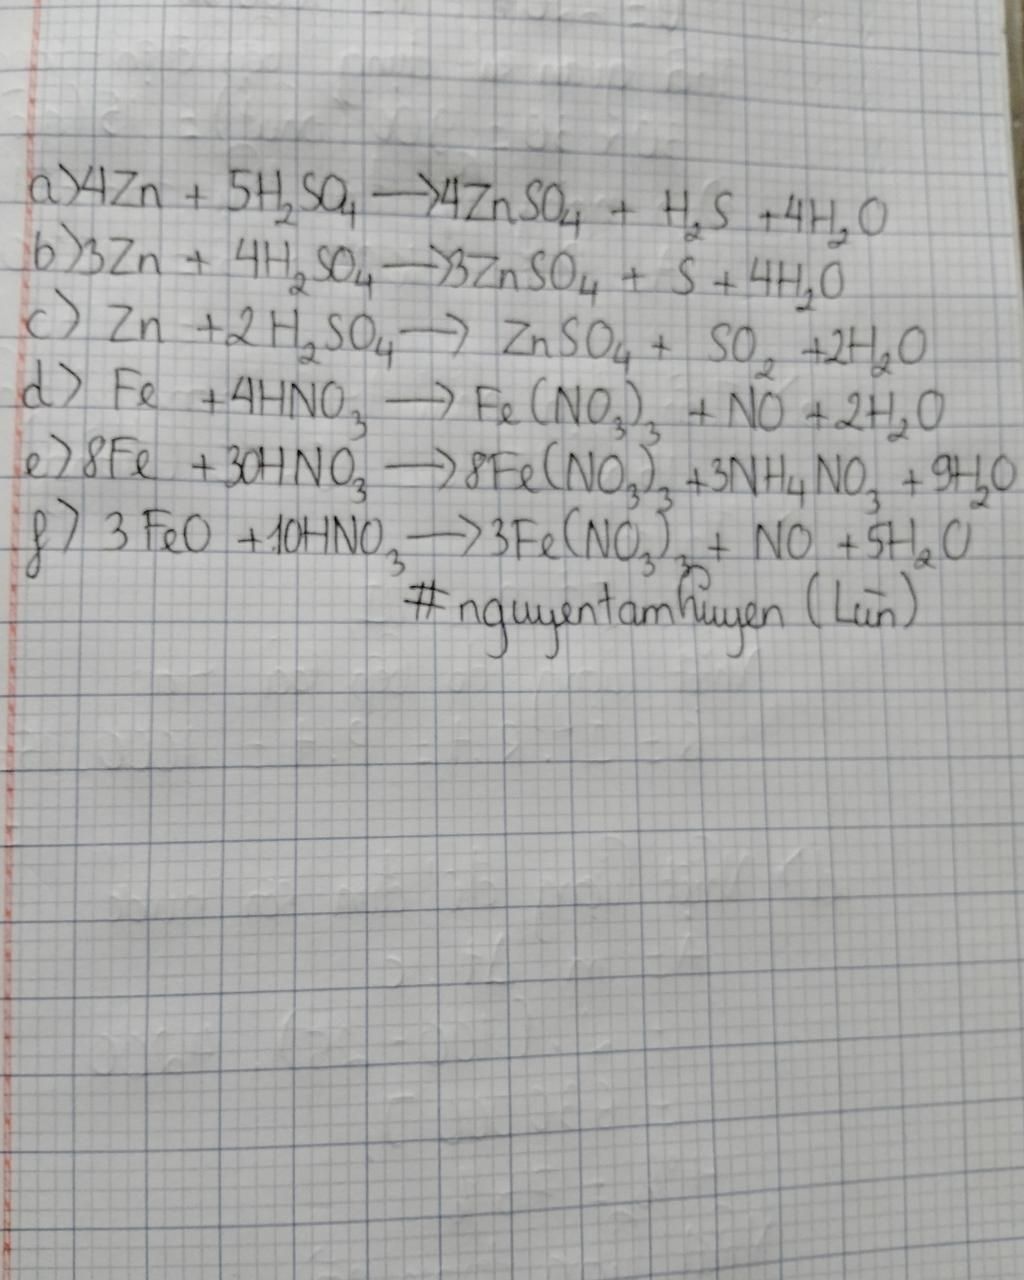 a) 4Zn + 5H₂SO₄ → 4ZnSO₄ + H₂S + 4H₂O
b) 3Zn + 4H₂SO₄ → 3ZnSO₄ + S + 4H₂O
c) Zn + 2H₂SO₄ → ZnSO₄ + SO₂ + 2H₂O
d) Fe + 4HNO₃ → Fe(NO₃)₃ + NO + 2H₂O
e) 8Fe + 30HNO₃ → 8Fe(NO₃)₃ + 3NH₄NO₃ + 9H₂O
f) 3FeO + 10HNO₃ → 3Fe(NO₃)₃ + NO + 5H₂O
#nguyentamhuyen (Lùn)